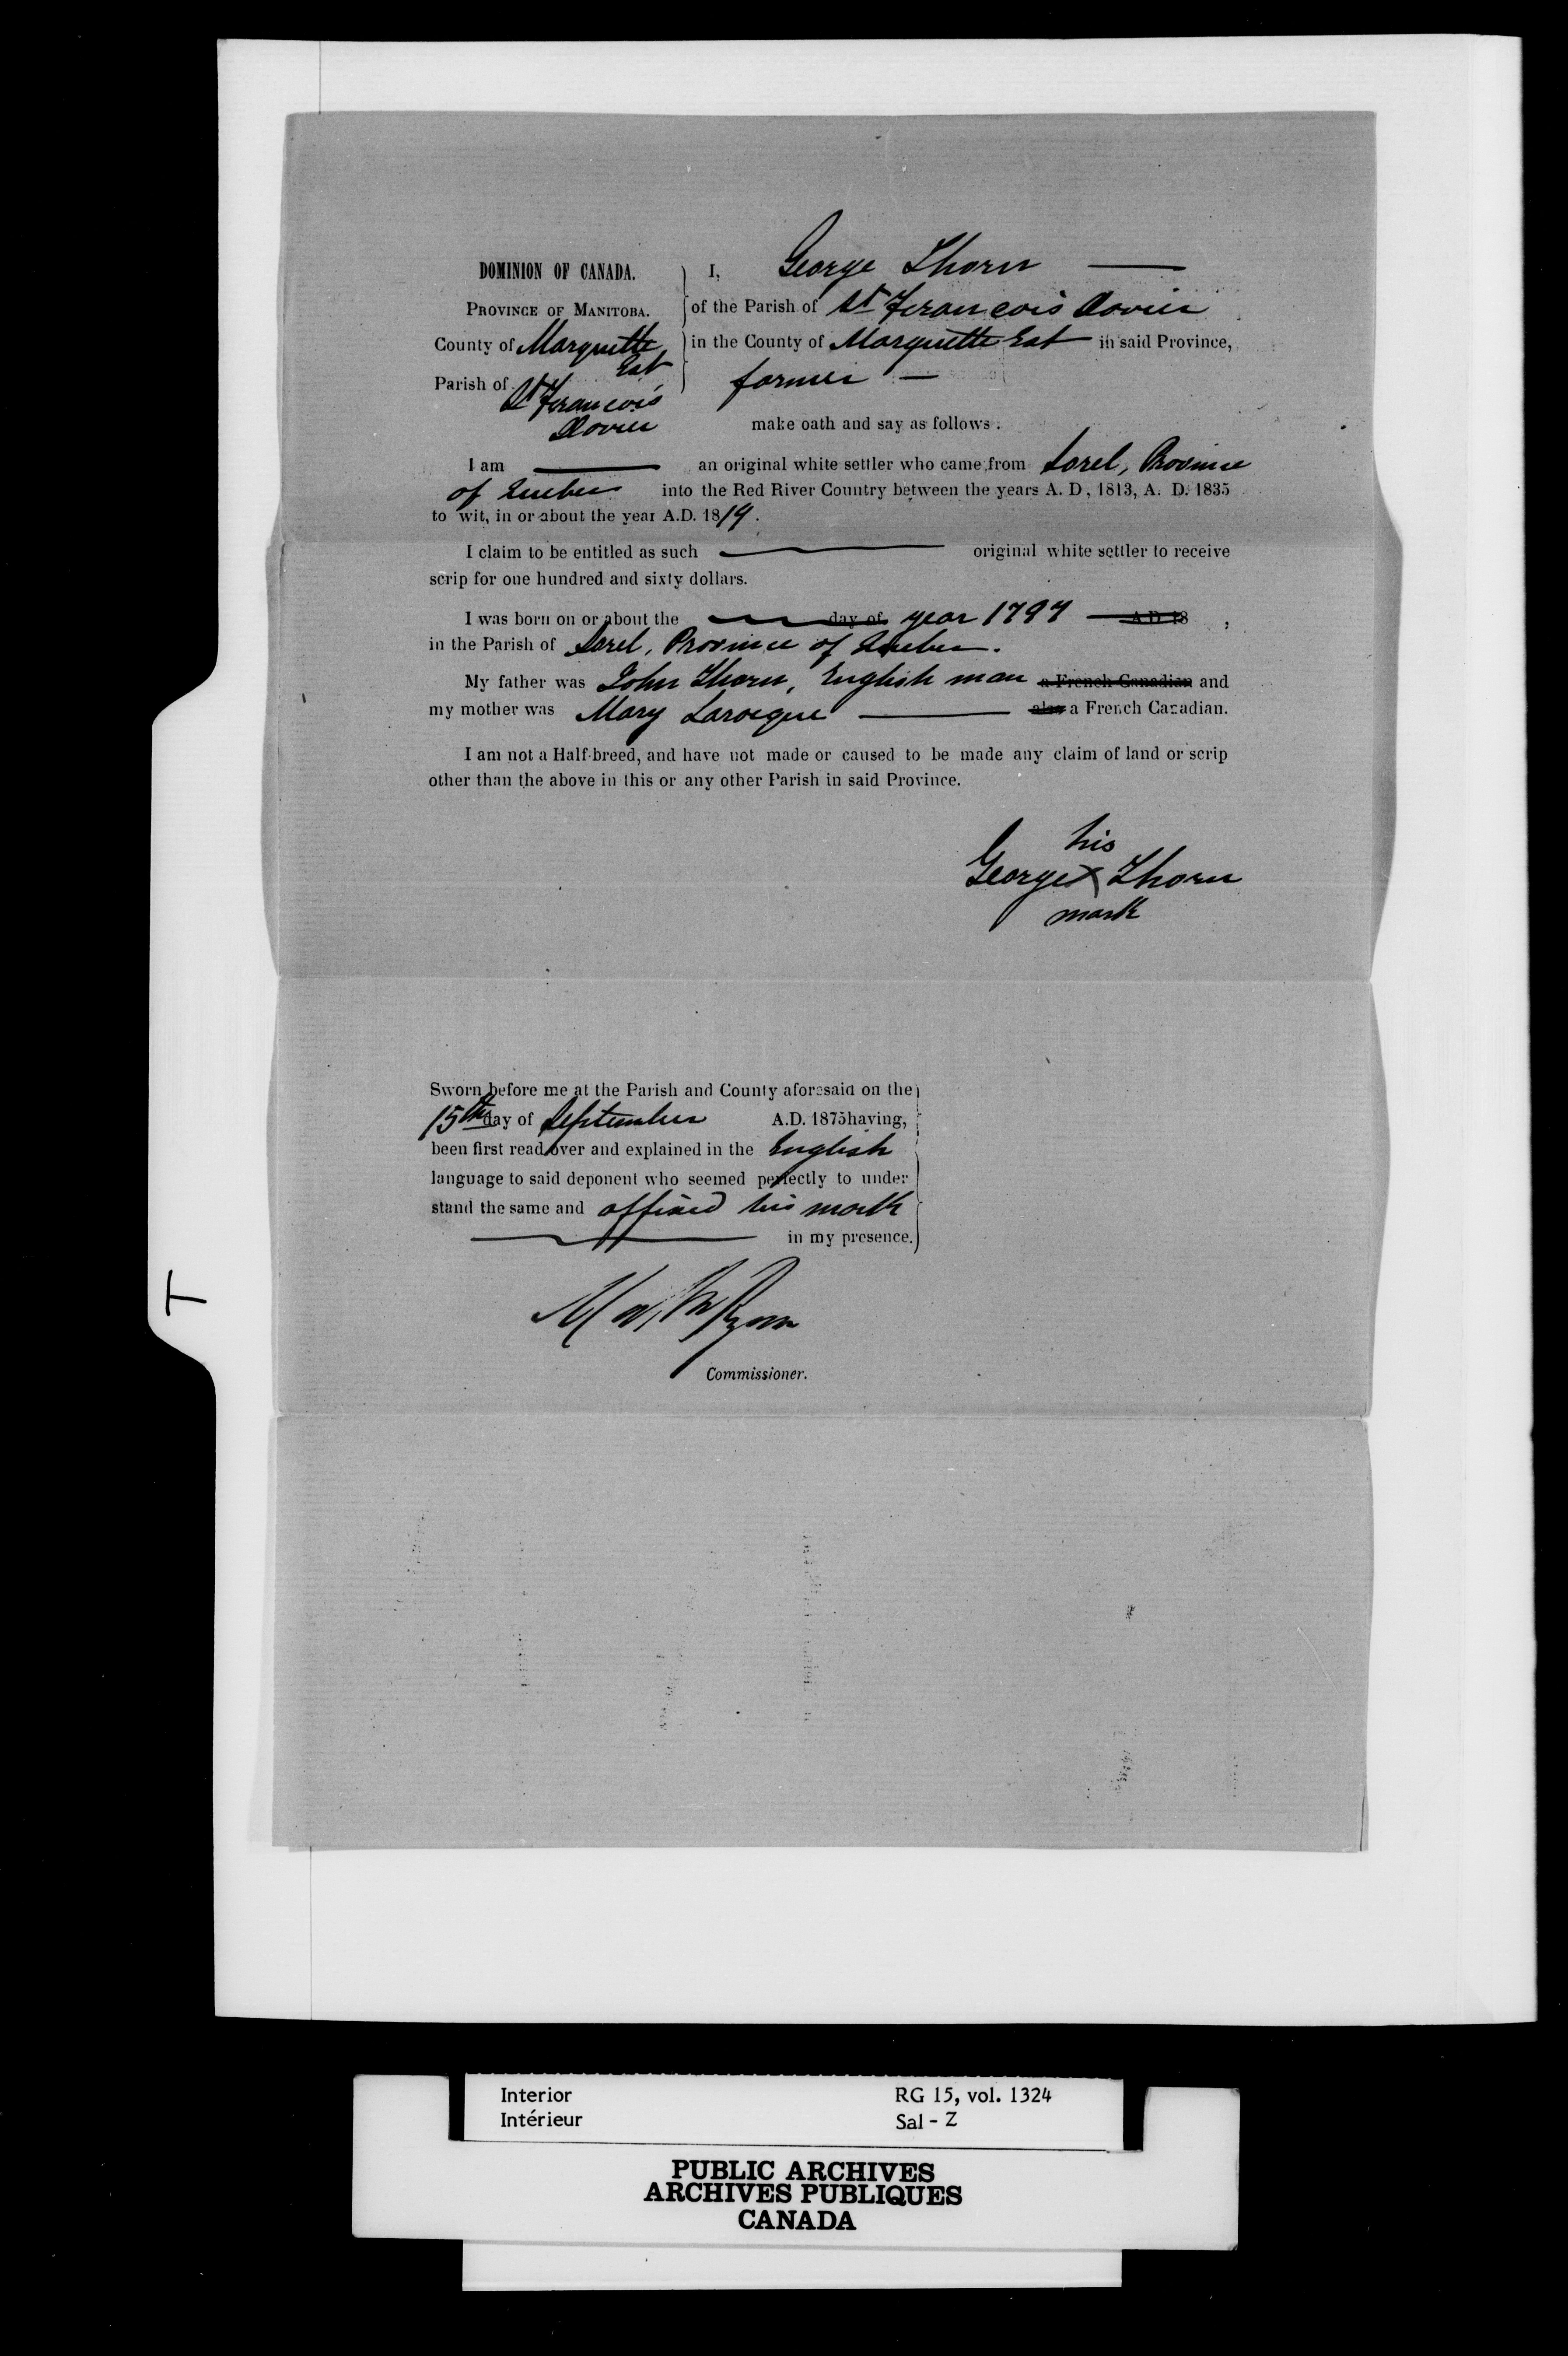 DOMINION OF CANADA.
PROVINCE OF MANITOBA.
County of Marquette
East
Parish of St Francois
Xavier
I, George Thorn
of the Parish of St Francois Xavier
in the County of Marquette East in said Province,
farmer
make oath and say as follows:
I am an original white settler who came from Sorel, Province
of Quebec into the Red River Country between the years A. D, 1813, A. D. 1835
to wit, in or about the year A.D. 1819.
I claim to be entitled as such original white settler to receive
scrip for one hundred and sixty dollars.
I was born on or about the day of year 1797 A.D 18 ,
in the Parish of Sorel, Province of Quebec.
My father was John Thorn, English man a French Canadian and
my mother was Mary Larocque also a French Canadian.
I am not a Half-breed, and have not made or caused to be made any claim of land or scrip
other than the above in this or any other Parish in said Province.
his
George X Thorn
mark
Sworn before me at the Parish and County aforesaid on the
15th day of September A.D. 1875 having,
been first read over and explained in the English
language to said deponent who seemed perfectly to under
stand the same and affixed his mark
in my presence.
Commissioner.
T
Interior RG 15, vol. 1324
Intérieur Sal - Z
PUBLIC ARCHIVES
ARCHIVES PUBLIQUES
CANADA